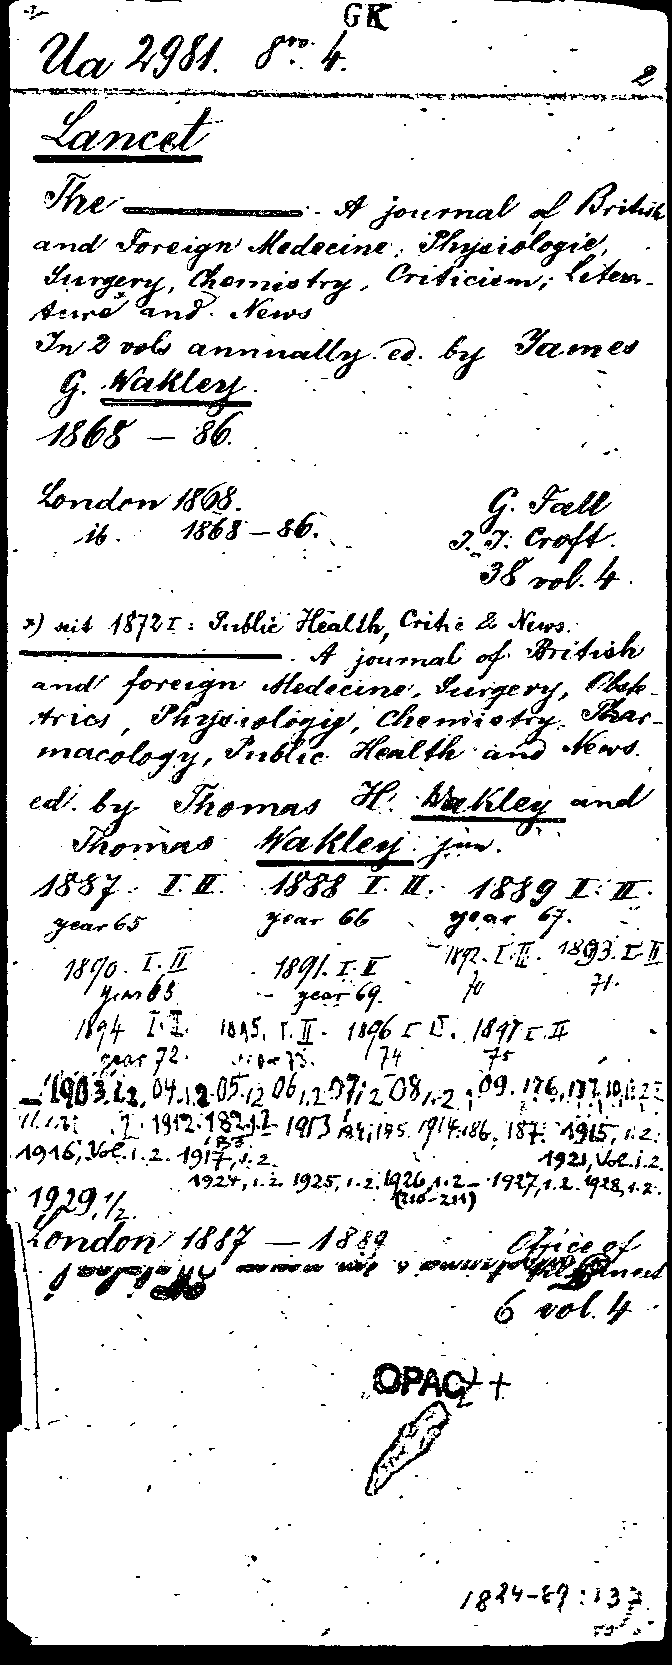 GK
Ua 2981. 8vo. 4.
2
Lancet
The ——— . A journal of British
and Foreign Medecine, Physiologie,
Surgery, Chemistry, Criticism, Litera-
ture and News
In 2 vols annually ed. by James
G. Wakley.
1868 — 86.
London 1868. G. Fall
ib. 1868 — 86. J. J. Croft.
38 vol. 4.
*) seit 1872 I: Public Health, Critic & News.
——— . A journal of British
and foreign Medecine, Surgery, Obste-
trics, Physiology, Chemistry, Phar-
macology, Public Health and News.
ed. by Thomas H. Wakley and
Thomas Wakley jun.
1887. I. II. 1888 I. II. 1889 I. II.
year 65 year 66 year 67.
1890. I. II 1891. I. II 1892. I. II. 1893. I. II
year 68 year 69. 70 71.
1894 I. II. 1895. I. II. 1896 I. II. 1897 I. II
year 72. year 73. 74 75
— 1903.1.2, 04.1.2. 05.1.2 06,1.2 07,1.2 08,1.2; 09. 176, 177,
1912. 182. 1913 184, 185. 1914. 186, 187. 1915, 1.2.
1916, Vol. 1.2. 1917, 1.2. 1921, Vol. 1.2.
1924, 1.2. 1925, 1.2. 1926, 1.2 – 1927, 1.2. 1928, 1.2.
(210-211)
1929, 1/2
London 1887 — 1889 Office of
6 vol. 4
OPAC +